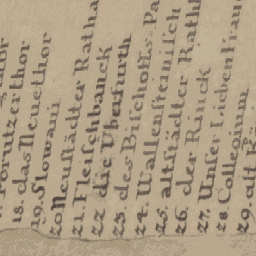 thor
Porutzerthor
18. das Neuethor
19. Slowani
20 Neustädter Ratha
21. Fleischbanck
22 die Uberfurth
23. des Bischoffs-Pa
24. Wallensteinisch
25. altstädter Rath
26. der Rinck
27. Unser Lieben Frau
28. Collegium
29. alt